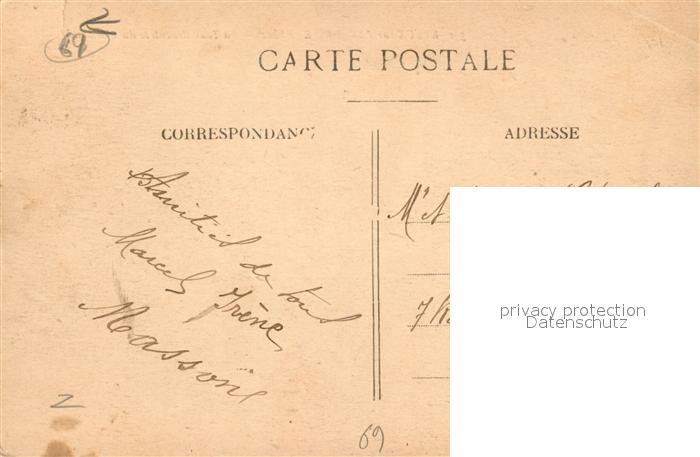 69
CARTE POSTALE
CORRESPONDANCE
ADRESSE
Amitiés de tous
Marcel Irène
Massoni
Mr A
privacy protection
Datenschutz
69